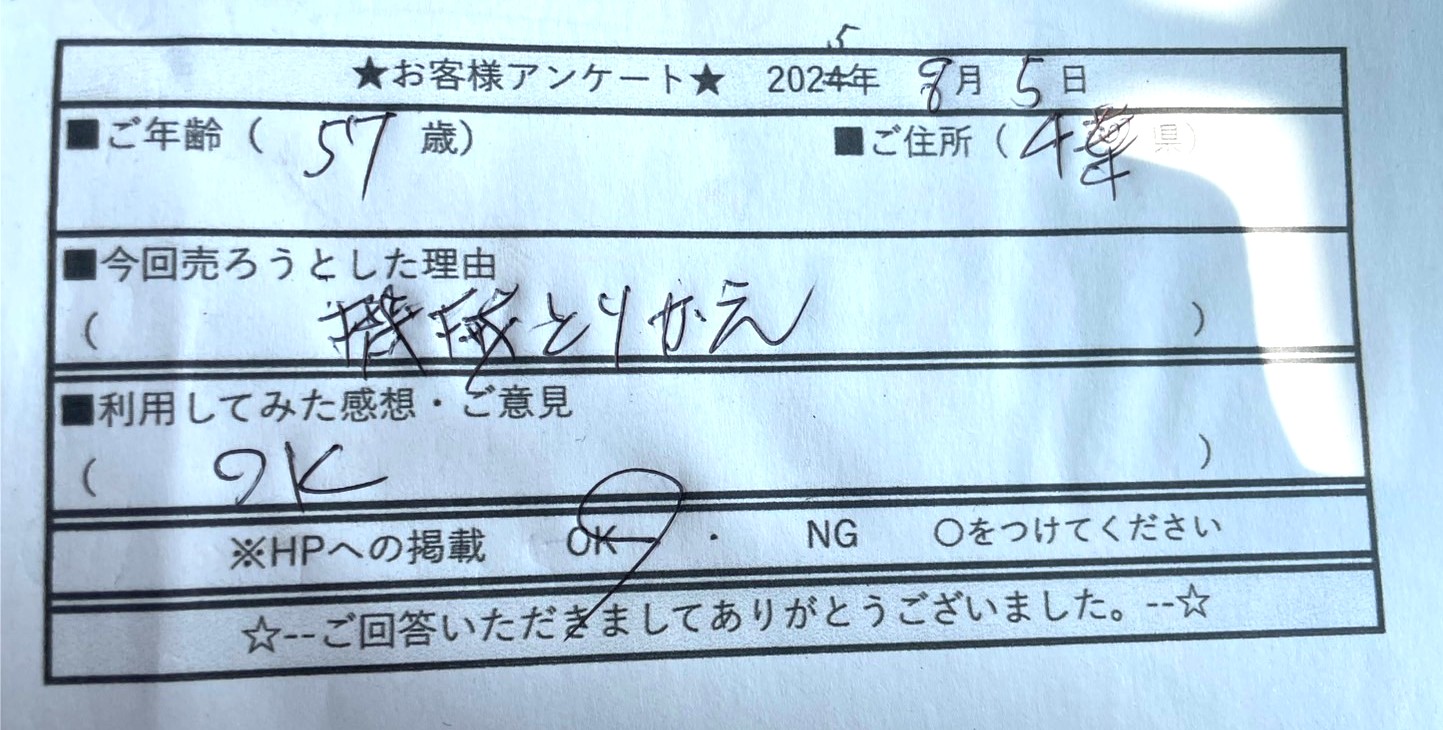 ★お客様アンケート★ 2025年 8月5日
■ご年齢（ 57 歳） ■ご住所（ 千葉 県）
■今回売ろうとした理由
（ 機械とりかえ ）
■利用してみた感想・ご意見
（ OK ）
※HPへの掲載 OK ・ NG ○をつけてください
☆--ご回答いただきましてありがとうございました。--☆